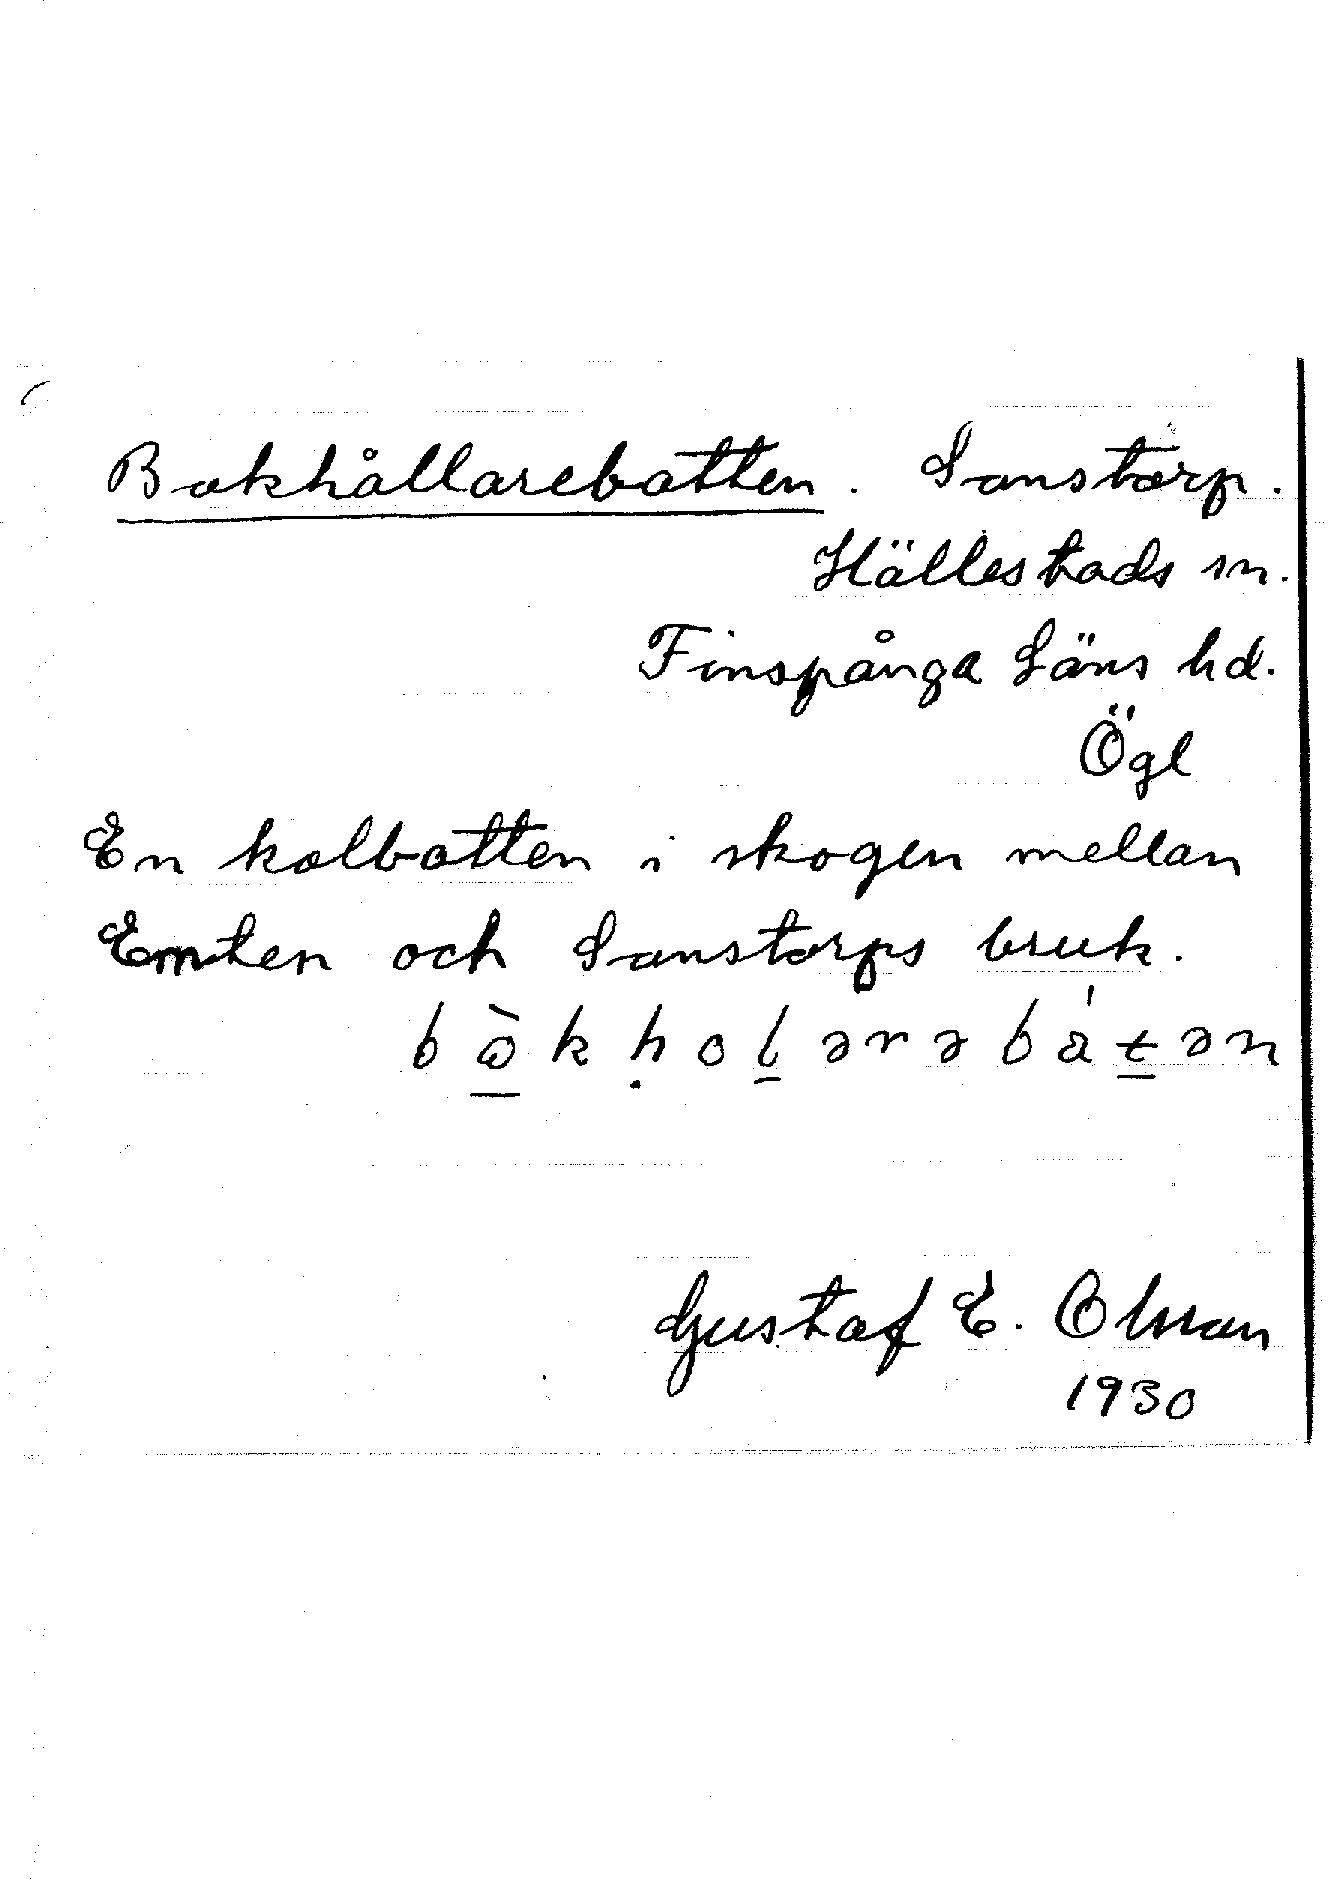 Bokhållarebotten. Sonstorp.
Hällestads sn.
Finspånga Läns hd.
Ögl
En kolbotten i skogen mellan
Emten och Sonstorps bruk.
Gustaf E. Olsson
1930